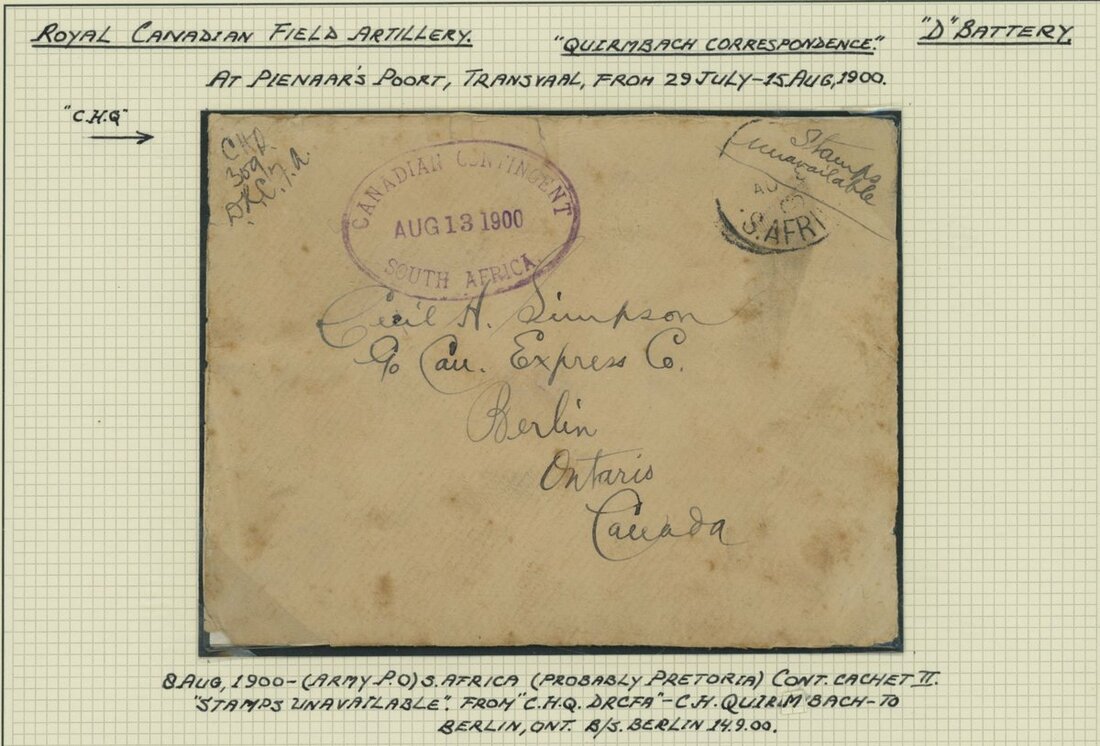 ROYAL CANADIAN FIELD ARTILLERY.
"QUIRMBACH CORRESPONDENCE".
"D" BATTERY
AT PIENAAR'S POORT, TRANSVAAL, FROM 29 JULY-15 AUG, 1900.
"C.H.Q"
309
CANADIAN CONTINGENT
AUG 13 1900
SOUTH AFRICA.
Stamps
unavailable
AU
S.AFRI
Cecil H. Simpson
c/o Can. Express Co.
Berlin
Ontario
Canada
8 AUG, 1900-(ARMY P.O) S. AFRICA (PROBABLY PRETORIA) CONT. CACHET II.
"STAMPS UNAVAILABLE". FROM "C.H.Q. DRCFA"-C.H. QUIRMBACH-TO
BERLIN, ONT. B/S. BERLIN 14.9.00.